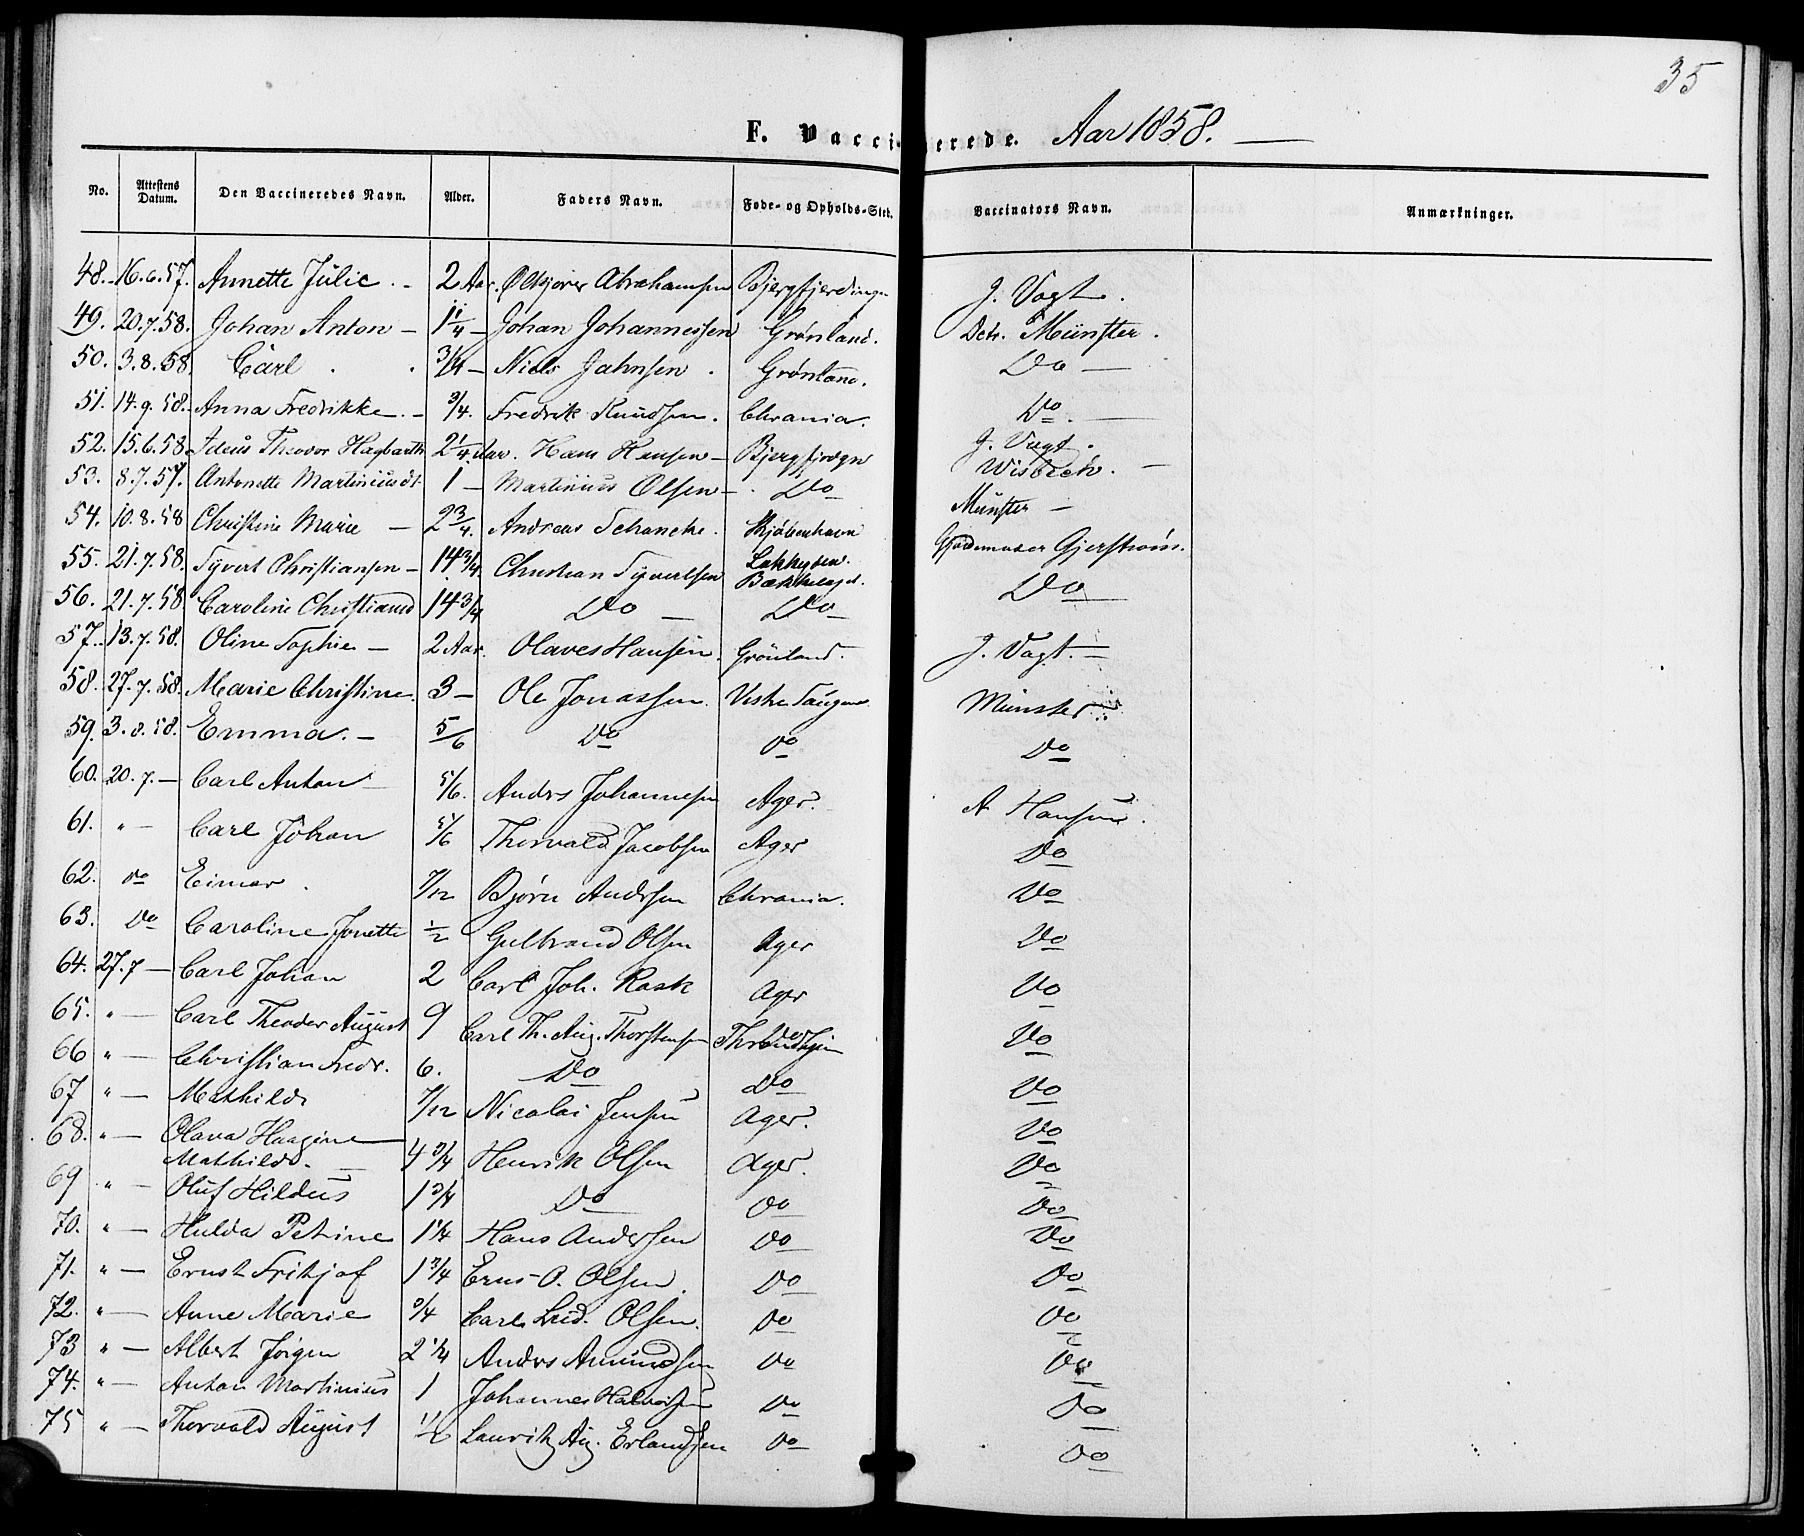 35
F. Vaccinerede. Aar 1858.
No. | Attestens Datum. | Den Vaccineredes Navn. | Alder. | Faders Navn. | Føde- og Opholds-Sted. | Vaccinators Navn. | Anmærkninger.
48. | 16.6.57. | Annette Julie. | 2 Aar. | Abrahamsen | | J. Vogt.
49. | 20.7.58. | Johan Anton | 1 1/4 | Johan Johannessen | Grønland. | Münster.
50. | 3.8.58. | Carl | 3/4 | Niels Jahnsen. | Grønland. | Do
51. | 14.9.58. | Anna Fredrikke. | 3/4. | Fredrik Knudsen. | Chrania. | Do.
52. | 15.6.58. | Theodor Hagbarth | 2 1/4 Aar. | Hans Hansen | | J. Vogt.
53. | 8.7.57. | Antonette Martiniusdt. | 1 | Martinius Olsen | Do | Wisbech.
54. | 10.8.58 | Christine Marie | 2 3/4. | Andreas Schancke. | Kjøbenhavn | Münster
55. | 21.7.58. | Syvert Christiansen | 14 3/4. | Christian Syvertsen | Bækkelaget. | Gjerstrøm.
56. | 21.7.58. | Caroline Christiansd | 14 3/4 | Do | Do | Do
57. | 13.7.58. | Oline Sophie | 2 Aar. | Olaves Hansen. | Grønland. | J. Vogt.
58. | 27.7.58. | Marie Christine. | 3 | Ole Jonassen. | | Münster
59. | 3.8.58. | Emma. | 5/6 | Do | Do | Do
60. | 20.7. | Carl Anton | 5/6. | Andrs Johannesen | Ager. | A Hansen.
61. | " | Carl Johan | 5/6 | Thorvald Jacobsen | Ager | Do
62. | do | Eimar. | 7/12 | Bjørn Andrsen | Chrania. | Do
63. | Do | Caroline Jonette | 1/2 | Gulbrand Olsen | Ager | Do
64. | 27.7 | Carl Johan | 2 | Carl Joh. Rask | Ager | Do
65. | " | Carl Theodor August | 9 | Carl Th. Aug. Thorstensen | Throndhjem | Do
66 | " | Christian Fredr. | 6. | Do | Do | Do
67 | " | Mathilde | 7/12 | Nicolai Jensen | Ager. | Do
68. | " | Olava Haagine Mathilde. | 4 3/4 | Henrik Olsen | Ager. | Do
69 | " | Oluf Hildus | 1 3/4 | Do | Do | Do
70. | " | Hulda Petrine | 1 1/4 | Hans Andersen | Do | Do
71. | " | Ernst Fritjof | 1 3/4 | Erns O. Olsen. | Do | Do
72. | " | Anne Marie | 3/4 | Carl Lud. Olsen. | Do | Do
73 | " | Albert Jørgen | 2 1/4 | Andrs Amundsen | Do | Do
74. | " | Anton Martinius | 1 | Johannes Halvorsen | Do | Do
75 | " | Thorvald August | 1/2 | Lauritz Aug. Erlandsen | Do | Do